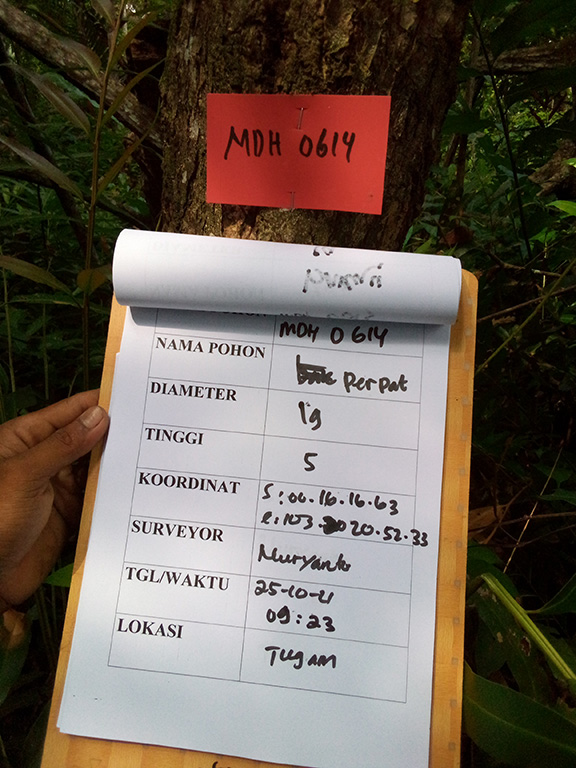 MDH 0614
MDH 0614
NAMA POHON
Perpat
DIAMETER
19
TINGGI
5
KOORDINAT
S:00.16.16.63
e:103. 20.52.33
SURVEYOR
Nuryanto
TGL/WAKTU
25-10-21
09:23
LOKASI
Tugam